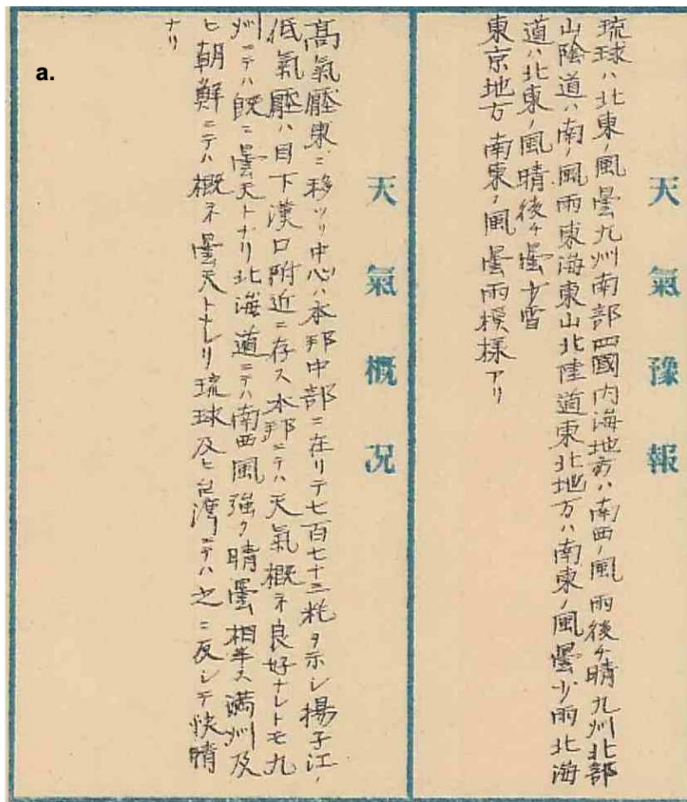 a.
天氣豫報
琉球ハ北東ノ風曇九州南部四國内海地方ハ南西ノ風雨後チ晴九州北部
山陰道ハ南ノ風雨東海東山北陸道東北地方ハ南東ノ風曇少雨北海
道ハ北東ノ風晴後チ曇少雪
東京地方 南東ノ風曇雨模様アリ
天氣概况
高氣壓東ニ移ツリ中心ハ本邦中部ニ在リテ七百七十三粍ヲ示シ揚子江ノ
低氣壓ハ目下漢口附近ニ存ス本邦ニテハ天氣概ネ良好ナレトモ九
州ニテハ既ニ曇天トナリ北海道ニテハ南西風強ク晴曇相半ス満州及
ヒ朝鮮ニテハ概ネ曇天トナレリ琉球及ヒ台湾ニテハ之ニ反シテ快晴
ナリ